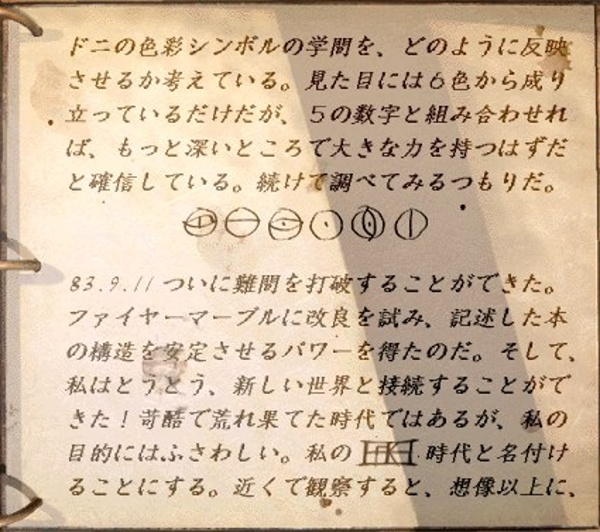 ドニの色彩シンボルの学問を、どのように反映
させるか考えている。見た目には6色から成り
立っているだけだが、5の数字と組み合わせれ
ば、もっと深いところで大きな力を持つはずだ
と確信している。続けて調べてみるつもりだ。
83.9.11 ついに難問を打破することができた。
ファイヤーマーブルに改良を試み、記述した本
の構造を安定させるパワーを得たのだ。そして、
私はとうとう、新しい世界と接続することがで
きた!苛酷で荒れ果てた時代ではあるが、私の
目的にはふさわしい。私の 時代と名付け
ることにする。近くで観察すると、想像以上に、